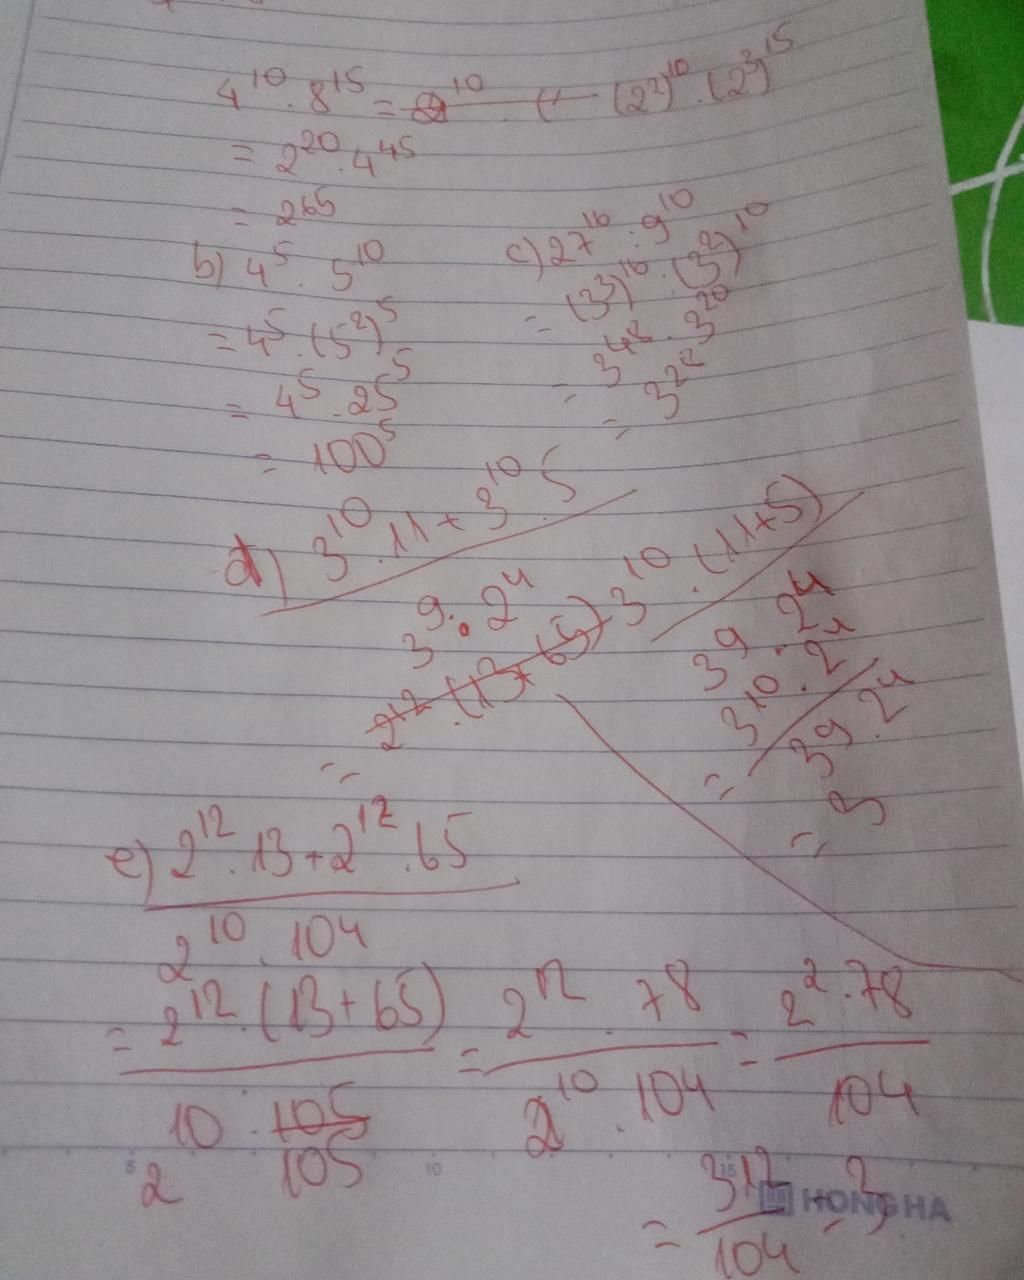 4^10 . 8^15 = (2^2)^10 . (2^3)^15
= 2^20 . 4^45
= 2^65
b) 4^5 . 5^10
= 4^5 . (5^2)^5
= 4^5 . 25^5
= 100^5
c) 27^16 : 9^10
= (3^3)^16 . (3^2)^10
= 3^48 . 3^20
= 3^28
d) 3^10 . 11 + 3^10 . 5
3^9 . 2^4
= 2^12 . (13 + 65) 3^10 . (11 + 5)
3^9 . 2^4
= 3^10 . 2^4
3^9 . 2^4
= 3
e) 2^12 . 13 + 2^12 . 65
2^10 . 104
= 2^12 . (13 + 65) = 2^12 . 78 = 2^2 . 78
2^10 . 105 2^10 . 104 104
105
= 312 = 3
104
HONG HA
5 10 15